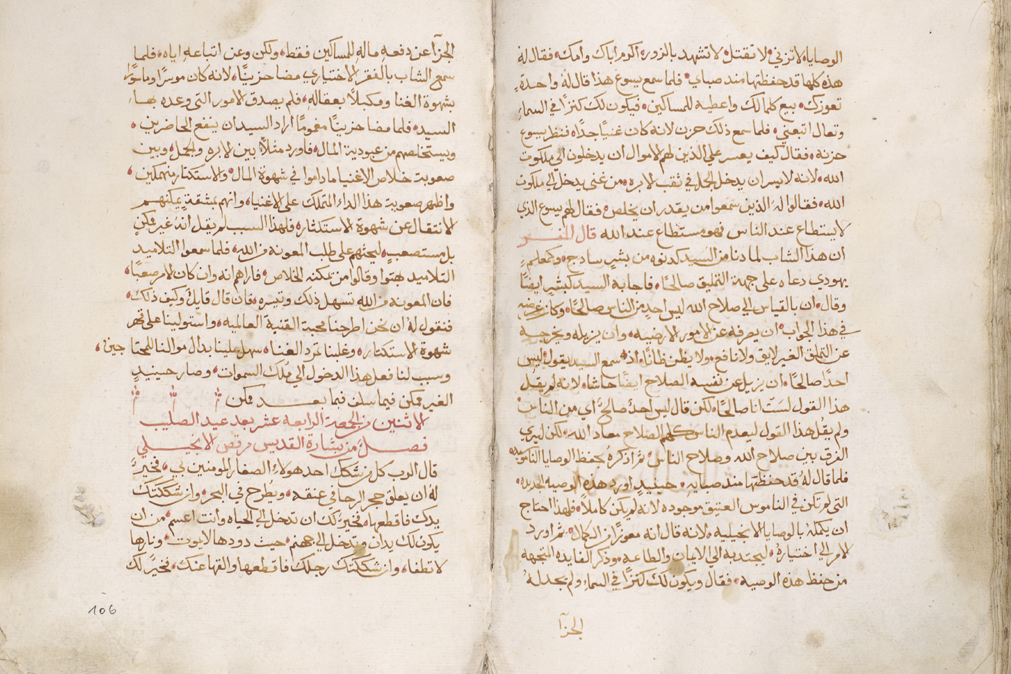 الوصايا لا تزني لا تقتل لا تشهد بالزور اكرم اباك وامك فقال له
هذه كلها قد حفظتها منذ صباي فلما سمع يسوع هذا قال له واحدة
تعوزك بيع كلما لك واعطيه للمساكين فيكون لك كنزًا في السماء
وتعال اتبعني فلما سمع ذلك حزن لانه كان غنيًا جدًا فنظر يسوع
حزنه فقال كيف يعسر على الذين لهم الاموال ان يدخلون الى ملكوت
الله لانه لايسر ان يدخل الجمل في ثقب الابره من غني يدخل الى ملكوت
الله فقالوا له الذين سمعوا من يقدر ان يخلص فقال لهم يسوع الذي
لا يستطاع عند الناس فهو مستطاع عند الله قال المفسر
ان هذا الشاب لما دنا من السيد كدنوه من بشر ساذج وكمعلم
يهودي دعاه على جهة التمليق صالحًا فاجابه السيد كبشر ايضًا
وقال ان بالقياس الى صلاح الله ليس احد من الناس صالحًا وكان غرضه
في هذا الجواب ان يرفه عن الامور الارضيه وان يزيله ويخرجه
عن التملق الغير لايق ولا نافع ولا يظن ظانًا اذا سمع السيد يقول ليس
احدًا صالحًا ان يزيل عن نفسه الصلاح ايضًا حاشا لانه لم يقل
هذا القول لست انا صالحًا لكن قال ليس احد صالح اي من الناس
ولم يقل هذا القول ليعدم الناس كلهم الصلاح معاد الله لكن ليري
الفرق بين صلاح الله وصلاح الناس ثم اذكره بحفظ الوصايا الناموسيه
فلما قال له قد حفظتها منذ صبايه حينيد اورد هذه الوصيه الجديده
التي لم تكن في الناموس العتيق موجوده لانه لم يكن كاملًا فلهذا احتاج
ان يكمله بالوصايا الانجيليه لانه قال انه معوز من الكمال ثم اردد
الامر الى اختياره ليجتذبه الى الايمان والطاعه وذكر الفايده المتجهه
من حفظ هذه الوصيه فقال ويكون لك كنزًا في السماء ولم يجد له
الجزآ
الجزآ عن دفعه ماله للمساكين فقط ولكن وعن اتباعه اياه فلما
سمع الشاب بالفقر الاختياري مضا حزينًا لانه كان موسرًا وماسورًا
بشهوة الغنا ومكبلًا بعقاله فلم يصدق الامور التي وعده بها
السيد فلما مضا حزينًا مغمومًا اراد السيد ان ينفع الحاضرين
ويستخلصهم من عبودية المال فاورد مثلًا بين الابره والجمل وبين
صعوبة خلاص الاغنيا ماداموا في شهوة المال والاستكثار منهمكين
واظهر صعوبة هذا الداء المتملك على الاغنيا وانهم بمشقة يمكنهم
الانتقال عن شهوة الاستكثار فلهذا السبب لم يقل انه غير ممكن
بل مستصعب ليحثهم على طلب المعونه من الله فلما سمعوا التلاميد
التلاميد هتوا وقالوا من يمكنه الخلاص فاراهم انه وان كان الامر صعبًا
فان المعونه من الله تسهل ذلك وتيسره فان قال قايل وكيف ذلك
فنقول له ان نحن اطرحنا محبة القنية العالميه واستولينا على قهر
شهوة الاستكثار وغلبنا تمرد الغنا سهل علينا بدال موالنا للمحتاجين
وسبب لنا فعل هذا الدخول الى ملك السموات وصار حينيد
الغير ممكن فيما سلف فيما بعد ممكن
الاثنين من الجمعة الرابعة عشر بعد عيد الصليب
فصل من بشارة القديس مرقص الانجيلي
قال الرب كل من شكك احد هولاء الصغار المومنين بي فخير
له ان يعلق حجر الرحا في عنقه ويطرح في البحر وان شككتك
يدك فاقطعها فخير لك ان تدخل الى الحياه وانت اعسم من ان
يكون لك يدان وتدخل الى جهنم حيث دودها لا يموت ونارها
لا تطفا وان شككتك رجلك فاقطعها والقها عنك فخير لك
106